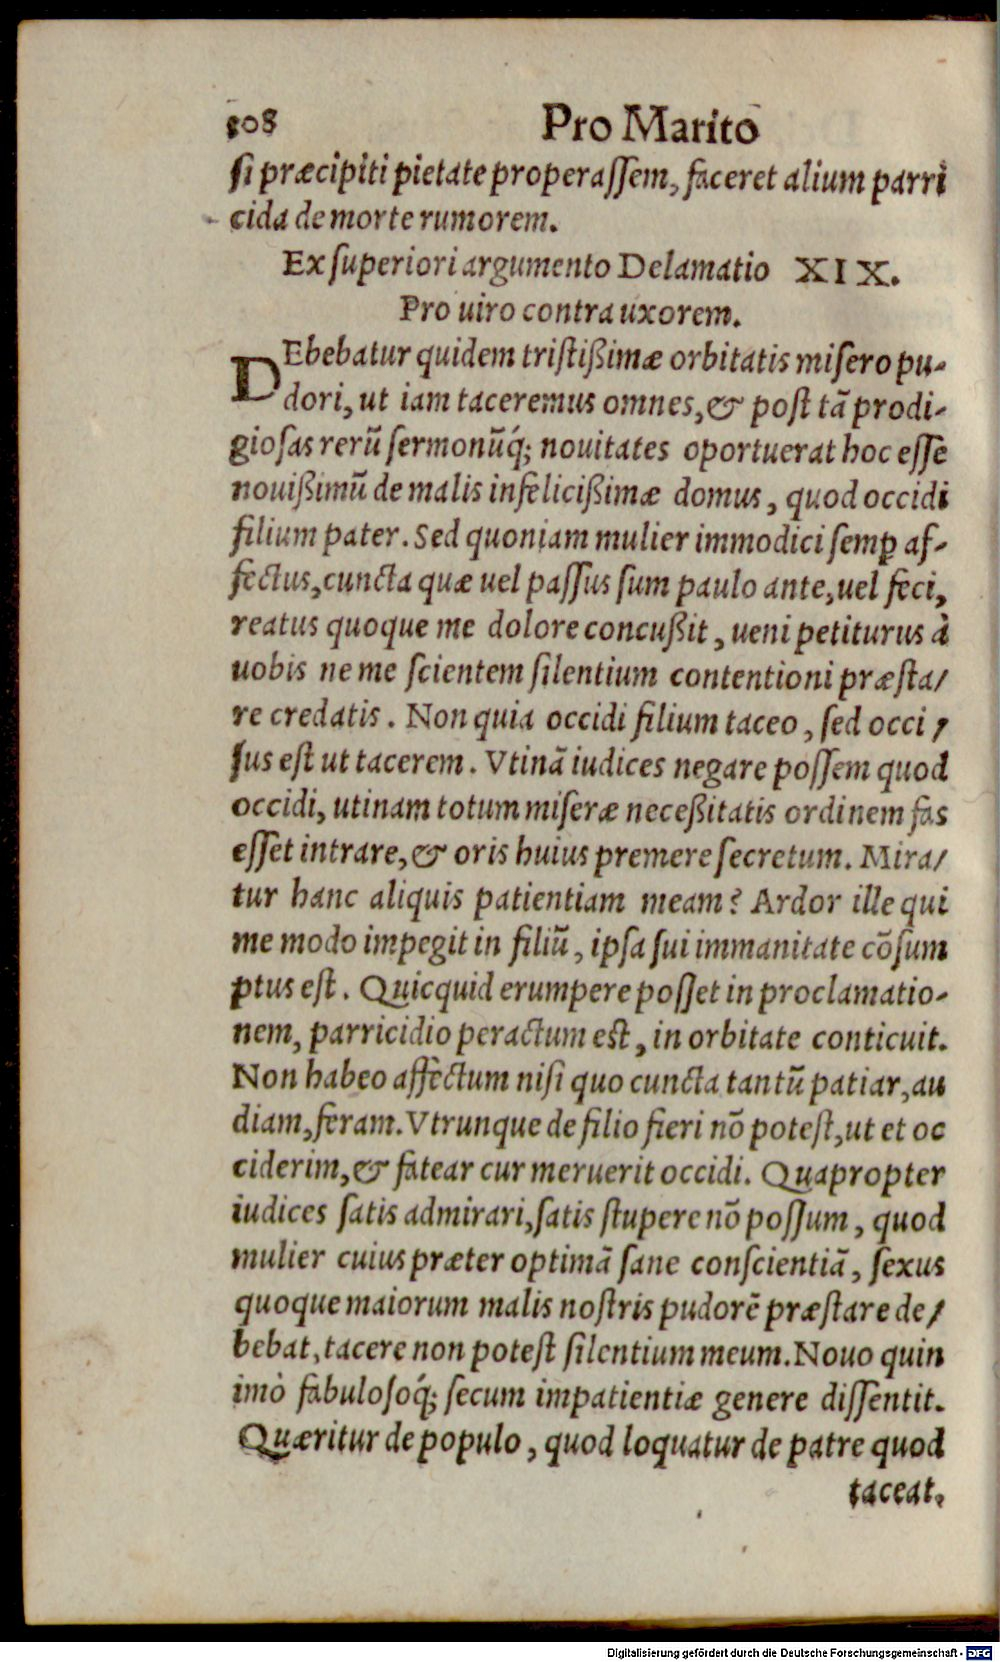 308 Pro Marito
ſi præcipiti pietate properaſſem, faceret alium parri
cida de morte rumorem.
Ex ſuperiori argumento Delamatio XIX.
Pro uiro contra uxorem.
DEbebatur quidem triſtißimæ orbitatis miſero pu-
dori, ut iam taceremus omnes, & poſt tā prodi-
gioſas rerū ſermonūq́; nouitates oportuerat hoc eſſe
nouißimū de malis infelicißimæ domus, quod occidi
filium pater. Sed quoniam mulier immodici ſemꝑ af-
fectus, cuncta quæ uel paſſus ſum paulo ante, uel feci,
reatus quoque me dolore concußit, ueni petiturus à
uobis ne me ſcientem ſilentium contentioni præſta/
re credatis. Non quia occidi filium taceo, ſed occi/
ſus eſt ut tacerem. Vtinā iudices negare poſſem quod
occidi, utinam totum miſeræ neceßitatis ordinem fas
eſſet intrare, & oris huius premere ſecretum. Mira/
tur hanc aliquis patientiam meam? Ardor ille qui
me modo impegit in filiū, ipſa ſui immanitate cōſum
ptus eſt. Quicquid erumpere poſſet in proclamatio-
nem, parricidio peractum est, in orbitate conticuit.
Non habeo affectum niſi quo cuncta tantū patiar, au
diam, feram. Vtrunque de filio fieri nō poteſt, ut et oc
ciderim, & fatear cur meruerit occidi. Quapropter
iudices ſatis admirari, ſatis ſtupere nō poſſum, quod
mulier cuius præter optimā ſane conſcientiā, ſexus
quoque maiorum malis noſtris pudorē præſtare de/
bebat, tacere non poteſt ſilentium meum. Nouo quin
imò fabuloſoq́; ſecum impatientiæ genere diſſentit.
Quæritur de populo, quod loquatur de patre quod
taceat.
Digitalisierung gefördert durch die Deutsche Forschungsgemeinschaft - DFG